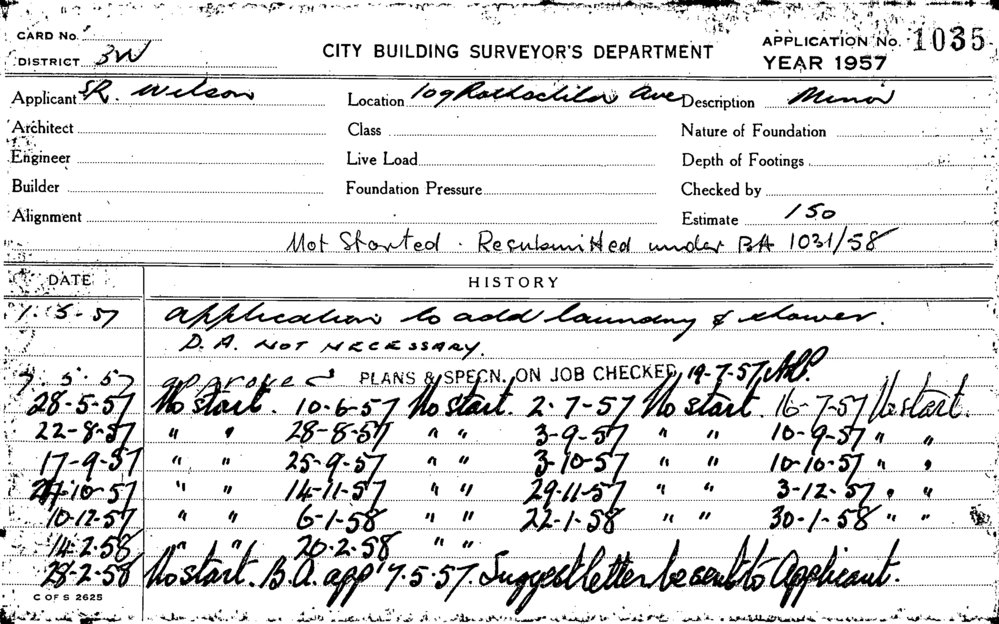 CARD No.
CITY BUILDING SURVEYOR'S DEPARTMENT
APPLICATION No. 1035
DISTRICT 3W
YEAR 1957
Applicant R. Wilson Location 109 Rothschild Ave Description Minor
Architect Class Nature of Foundation
Engineer Live Load Depth of Footings
Builder Foundation Pressure Checked by
Alignment Estimate 150
Not Started. Resubmitted under BA 1031/58
DATE HISTORY
1.5.57 Application to add laundry & shower.
D.A. NOT NECESSARY.
7.5.57 approved PLANS & SPECN. ON JOB CHECKED 19-7-57
28-5-57 No start. 10-6-57 No start. 2-7-57 No start. 16-7-57 No start.
22-8-57 " " 28-8-57 " " 3-9-57 " " 10-9-57 " "
17-9-57 " " 25-9-57 " " 3-10-57 " " 10-10-57 " "
10-57 " " 14-11-57 " " 29-11-57 " " 3-12-57 " "
10-12-57 " " 6-1-58 " " 22-1-58 " " 30-1-58 " "
14-2-58 " " 20-2-58 " "
28-2-58 No start. B.A. app' 7.5.57. Suggest letter be sent to Applicant.
C OF S 2625